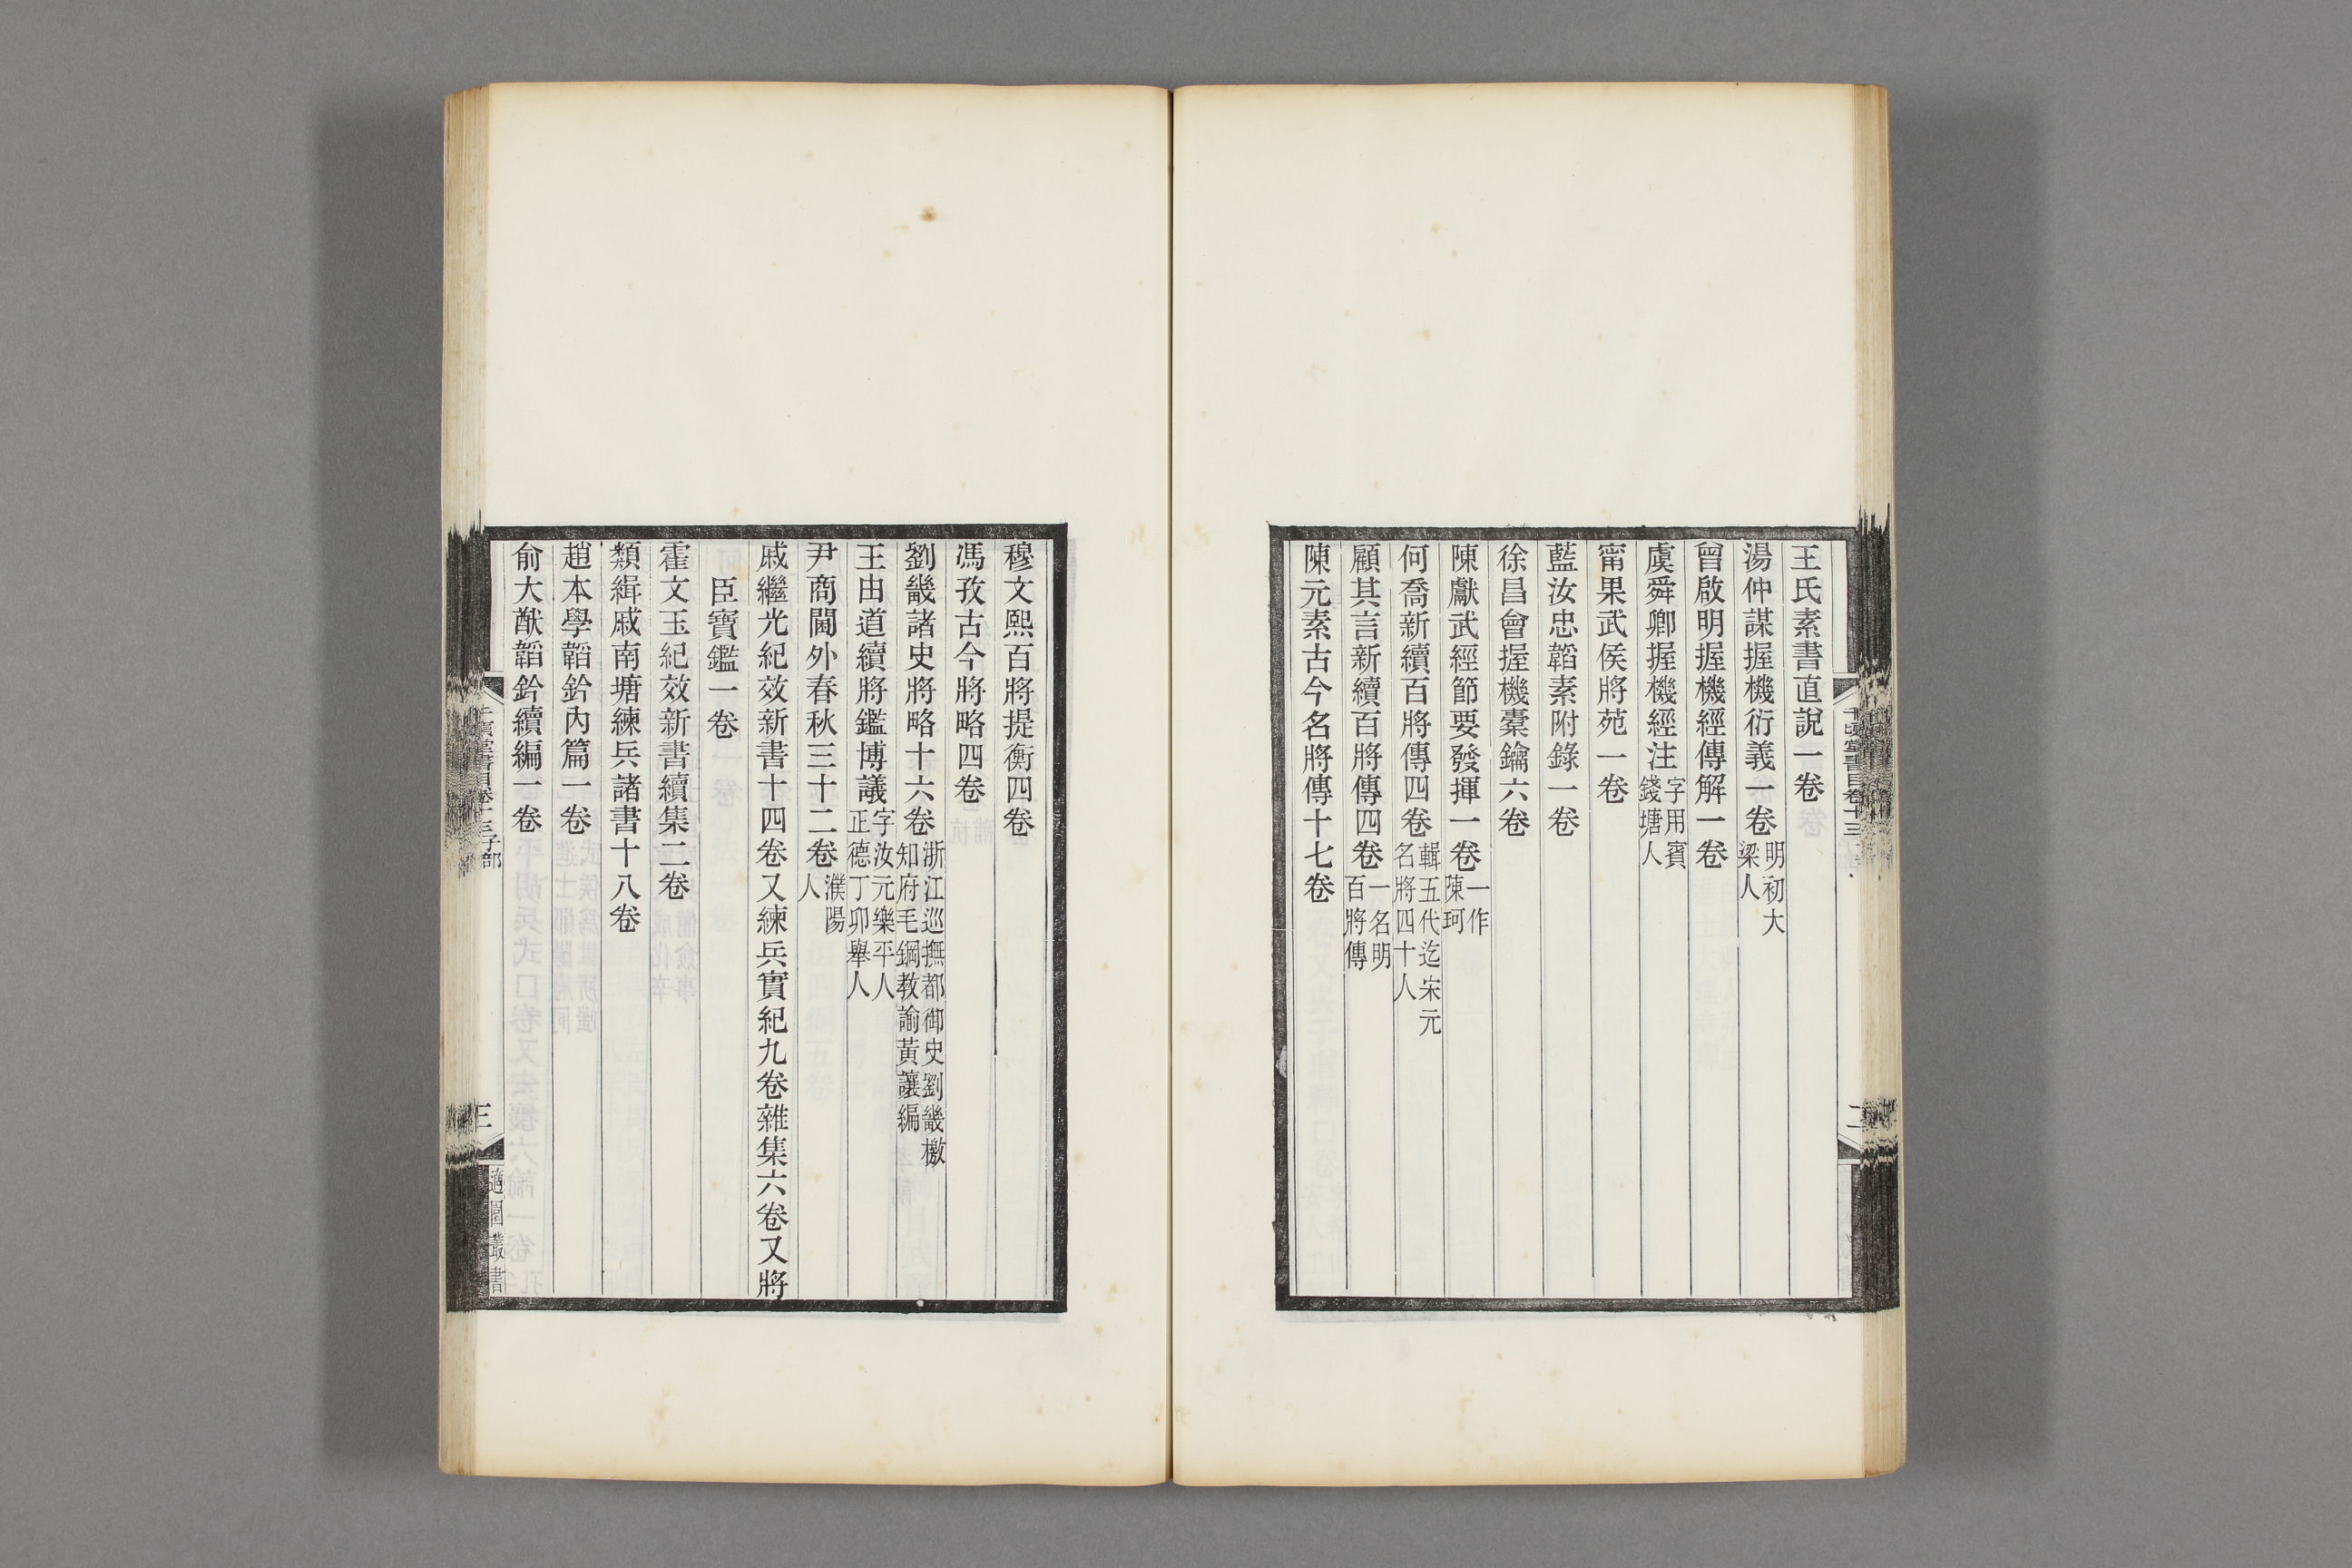 王氏素書直說一卷
湯仲謀握機衍義一卷 明初大梁人
曾啟明握機經傳解一卷
虞舜卿握機經注 字用賓錢塘人
甯果武侯將苑一卷
藍汝忠韜素附錄一卷
徐昌會握機橐鑰六卷
陳獻武經節要發揮一卷 一作陳珂
何喬新續百將傳四卷 輯五代迄宋元名將四十人
顧其言新續百將傳四卷 一名明百將傳
陳元素古今名將傳十七卷
穆文熙百將提衡四卷
馮孜古今將略四卷
劉畿諸史將略十六卷 浙江巡撫都御史劉畿檄知府毛鋼教諭黃讓編
王由道續將鑑博議 字汝元樂平人正德丁卯舉人
尹商閫外春秋三十二卷 濮陽人
戚繼光紀效新書十四卷又練兵實紀九卷雜集六卷又將
臣寶鑑一卷
霍文玉紀效新書續集二卷
類緝戚南塘練兵諸書十八卷
趙本學韜鈐內篇一卷
俞大猷韜鈐續編一卷
千頃堂書目卷十三子部
三
適園叢書